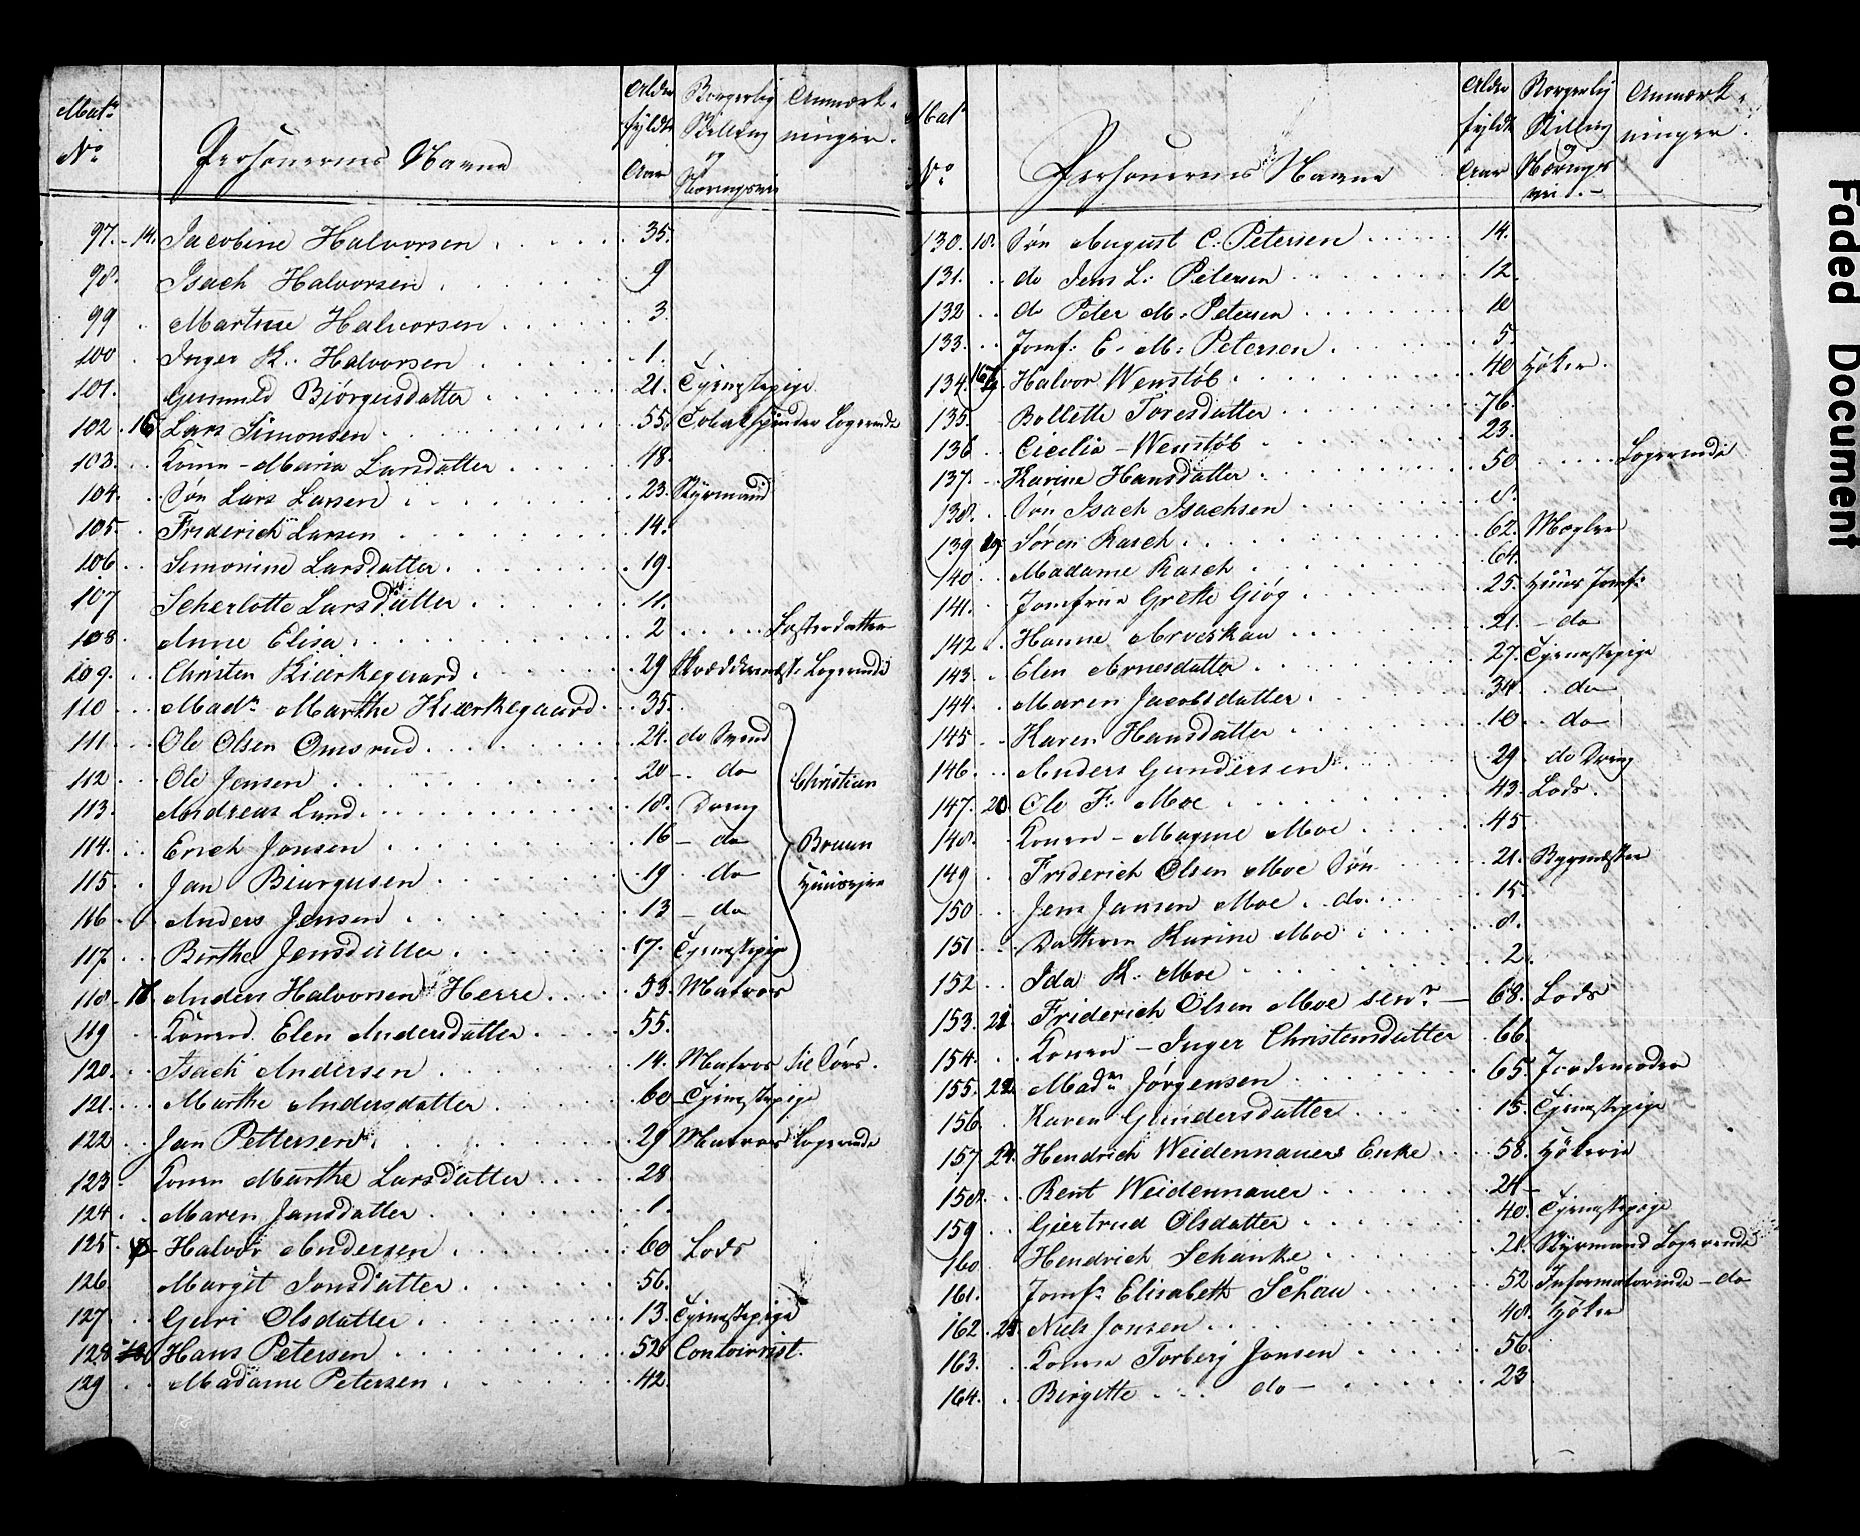 Matr No Personernes Navne Alder fyldte Aar Borgerlig Stilling og Næringsvei Anmærkninger.
97. 14. Jacobine Halvorsen 35.
98. Isach Halvorsen 9
99 Martine Halvorsen 3
100 Inger K. Halvorsen 1.
101. Gunnild Biörgusdatter 21. Tjenestepige
102. 15 Lars Simonsen 55. Tobakspinder Logerende
103. Konen - Maria Larsdatter 48.
104. Søn Lars Larsen 23. Styrmand
105. Friderich Larsen 14.
106 Simonine Larsdatter 19.
107 Scherlotte Larsdatter 11.
108 Anne Elisa 2 Fosterdatter
109. Christen Kierkegaard 29 Skræddermest. Logerende
110 Madm Marthe Kierkegaard 35.
111 Ole Olsen Omsrud 24. do Svend
112 Ole Jensen 20 - do Christian
113. Andreas Lund 18. Dreng
114. Erich Jonsen 16 - do Bruun
115 Jan Biurgusen 19 do Huusejer
116 Anders Jensen 13 - do
117. Birthe Jensdatter 17. Tjenestepige
118. Anders Halvorsen Herre 53. Matros
119 Konen Elen Andersdatter 55.
120. Isach Andersen 14. Matros til Søes.
121. Marthe Andersdatter 60 Tjenestepige
122 Jan Pettersen 29 Matros Logerende
123 Konen Marthe Larsdatter 28
124 Maren Jansdatter 1.
125 Halvor Andersen 60 Lods
126. Margit Jonsdatter 56.
127 Guri Olsdatter 13. Tjenestepige
128 Hans Petersen 52 Contoirist.
129 Madame Petersen 42.
Matr No Personernes Navne Alder fyldte Aar Borgerlig Stilling og Nærings vei. Anmærkninger.
130. 18. Søn August C. Petersen 14.
131. do Jens L. Petersen 12.
132 do Peter M. Petersen 10
133. Jomf. E. M. Petersen 5.
134. Halvor Wenstøb 40 Høker.
135. Bollette Toresdatter 76.
136 Cicilia Wenstøb 23.
137. Karine Hansdatter 50 Logerende
138. Søn Isach Isachsen 8.
139 19 Søren Rasch 62. Mægler
140 Madame Rasch 64.
141. Jomfrue Grethe Giög 25. Huus Jomf:
142 Hanne Arveskau 21. - do
143. Elen Arnesdatter 27. Tjenestepige
144. Maren Jacobsdatter 34 do
145 Karen Hansdatter 10 do
146. Anders Gundersen 29 do Dreng
147. 20. Ole F. Moe 43. Lods.
148. Konen - Magrete Moe 45
149 Friderich Olsen Moe Søn 21. Bygmester
150 Jens Jansen Moe. do. 15.
151 Datteren Karine Moe 8.
152 Ida K. Moe 2.
153. 21. Friderich Olsen Moe senr 68. Lods
154. Konen - Inger Christensdatter 66.
155. 22. Madm Jørgensen 65. Jordemoder
156 Karen Gundersdatter 15. Tjenestepige
157 24. Hendrich Weidennauers Enke 58. Hökerie
158. Bent Weidennauer 24
159 Giertrud Olsdatter 40. Tjenestepige
160 Hendrich Schanke 21. Styrmand Logerende
161. Jomfr Elisabeth Schau 52 Informatorinde - do
162 25 Niels Jonsen 48. Høker
163. Konen Torberg Jonsen 56.
164. Birgitte do - 23
Faded Document